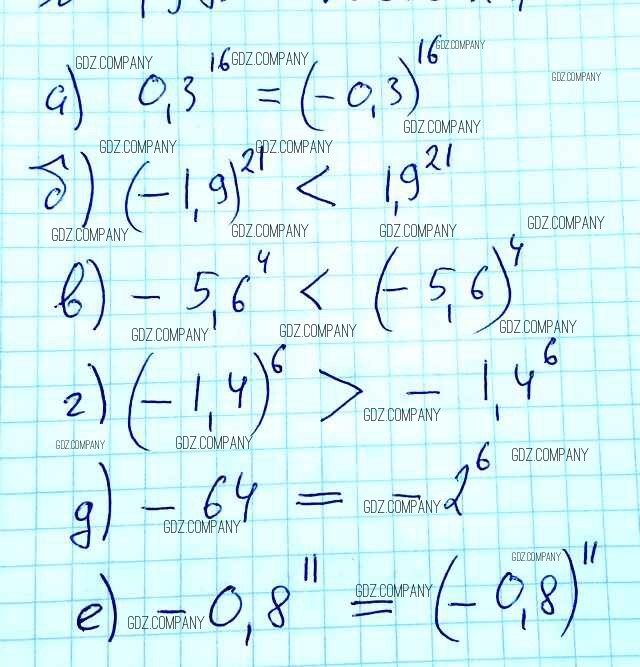 GDZ.COMPANY GDZ.COMPANY GDZ.COMPANY GDZ.COMPANY
а) 0,3¹⁶ = (-0,3)¹⁶
GDZ.COMPANY
GDZ.COMPANY GDZ.COMPANY
б) (-1,9)²¹ < 1,9²¹
GDZ.COMPANY GDZ.COMPANY GDZ.COMPANY GDZ.COMPANY
в) - 5,6⁴ < (-5,6)⁴
GDZ.COMPANY GDZ.COMPANY GDZ.COMPANY
г) (-1,4)⁶ > - 1,4⁶
GDZ.COMPANY
GDZ.COMPANY GDZ.COMPANY GDZ.COMPANY
д) - 64 = - 2⁶
GDZ.COMPANY GDZ.COMPANY
GDZ.COMPANY
е) - 0,8¹¹ = (-0,8)¹¹
GDZ.COMPANY GDZ.COMPANY